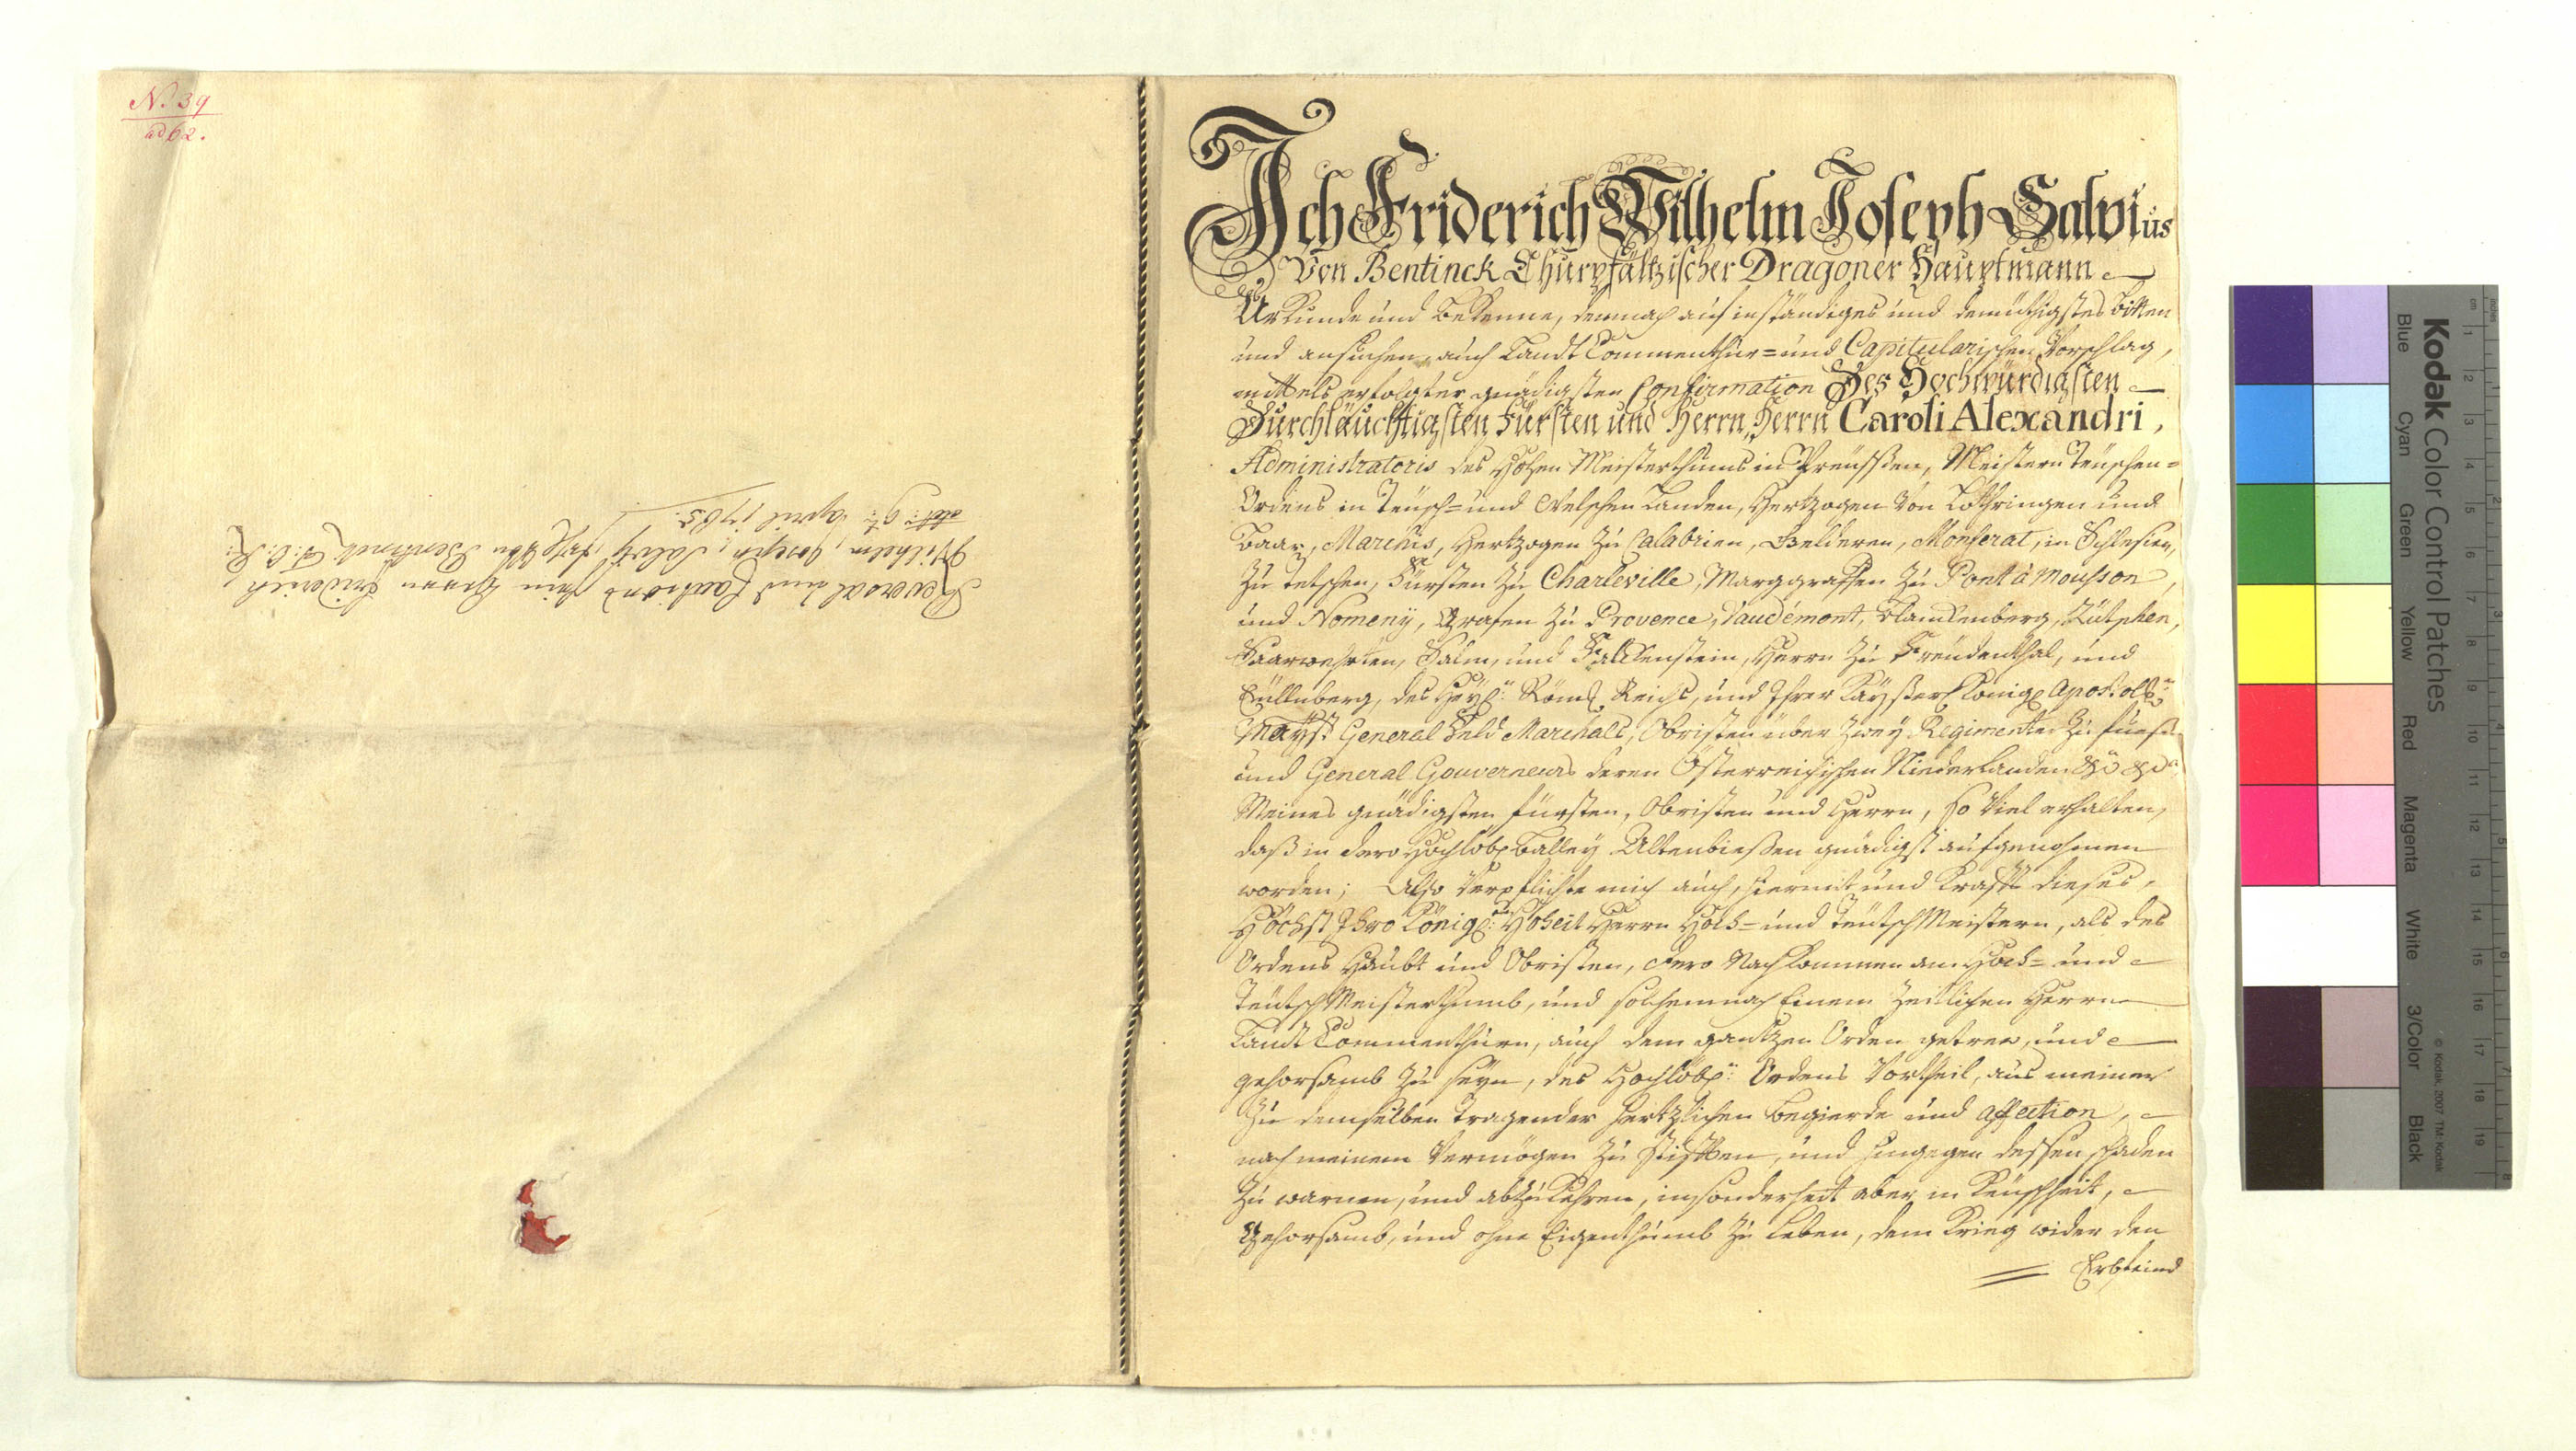 N. 39
ad 62.
Reversal und Caution des Herrn Friderich
Wilhelm, Joseph, Salvij, Von Bentinck
9t. April 1765.
Ich Friderich Wilhelm Joseph Salvius
Von Bentinck Churpfältzischer Dragoner Hauptmann
Urkunde und Bekenne, demnach auf inständiges und demüthigstes bitten
und ansuchen, auch Landt Commenthur= und Capitularischen Vorschlag,
mittels erfolgter gnädigsten Confirmation Des Hochwürdigsten
Durchläuchtigsten Fürsten und Herrn, Herrn Caroli Alexandri,
Administratoris des Hohen Meisterthums in Preüssen, Meistern Teüschen=
Ordens in Teüsch= und Welschen Landen, Hertzogen Von Lothringen und
Baar, Marchis, Hertzogen Zu Calabrien, Gelderen, Monferat, in Schlesien,
Zu Tetschen, Fürsten Zu Charleville, Marggraffen Zu Pont à Mousson,
und Nomeny, Grafen Zu Provence, Vaudémont, Blanckenberg, Zütphen,
Saarwehrden, Salm, und Falckenstein, Herrn Zu Freudenthal, und
Eüllenberg, des Heyl: Röml: Reichs, und Ihrer Kayserl: Königl: Apostoll:
Mayst: General Feld Marchals, Obristen über Zwey Regimenter Zu fueß
und General Gouverneurs deren Österreichischen Niederlanden &c &c:
Meines gnädigsten fürsten, Obristen und Herrn, so Viel erhalten,
daß in dero Hochlöbl: Balley Altenbiessen gnädigst aufgenohmen
worden; Also Verpflichte mich auch, hiermit und Krafft dieses,
Höchst Ihro Königl: Hoheit Herrn Hoch= und Teütsch Meistern, als des
Ordens Haubt und Obristen, dero Nachkommen am Hoch= und
Teütsch Meisterthumb, und solchemnach Einem Zeitlichen Herrn
Landt Commenthurn, auch dem gantzen Orden getrew, und
gehorsamb Zu seyn, des Hochlöbl: Ordens Vortheil, aus meiner
Zu demselben tragender hertzlichen Begierde und affection,
nach meinem Vermögen Zu stifften, und hingegen dessen schaden
Zu warnen, und abzukehren, insonderheit aber in Keüschheit,
Gehorsamb, und ohne Eigenthumb Zu Leben, dem Krieg wider den
Erbfeind
Kodak Color Control Patches
© Kodak, 2007 TM: Kodak
Blue Cyan Green Yellow Red Magenta White 3/Color Black